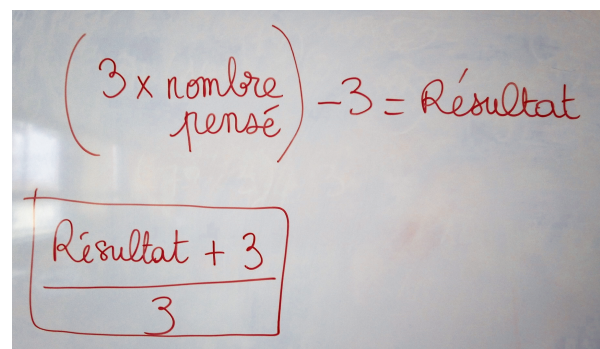 (3 x nombre
pensé) - 3 = Résultat
Résultat + 3
3